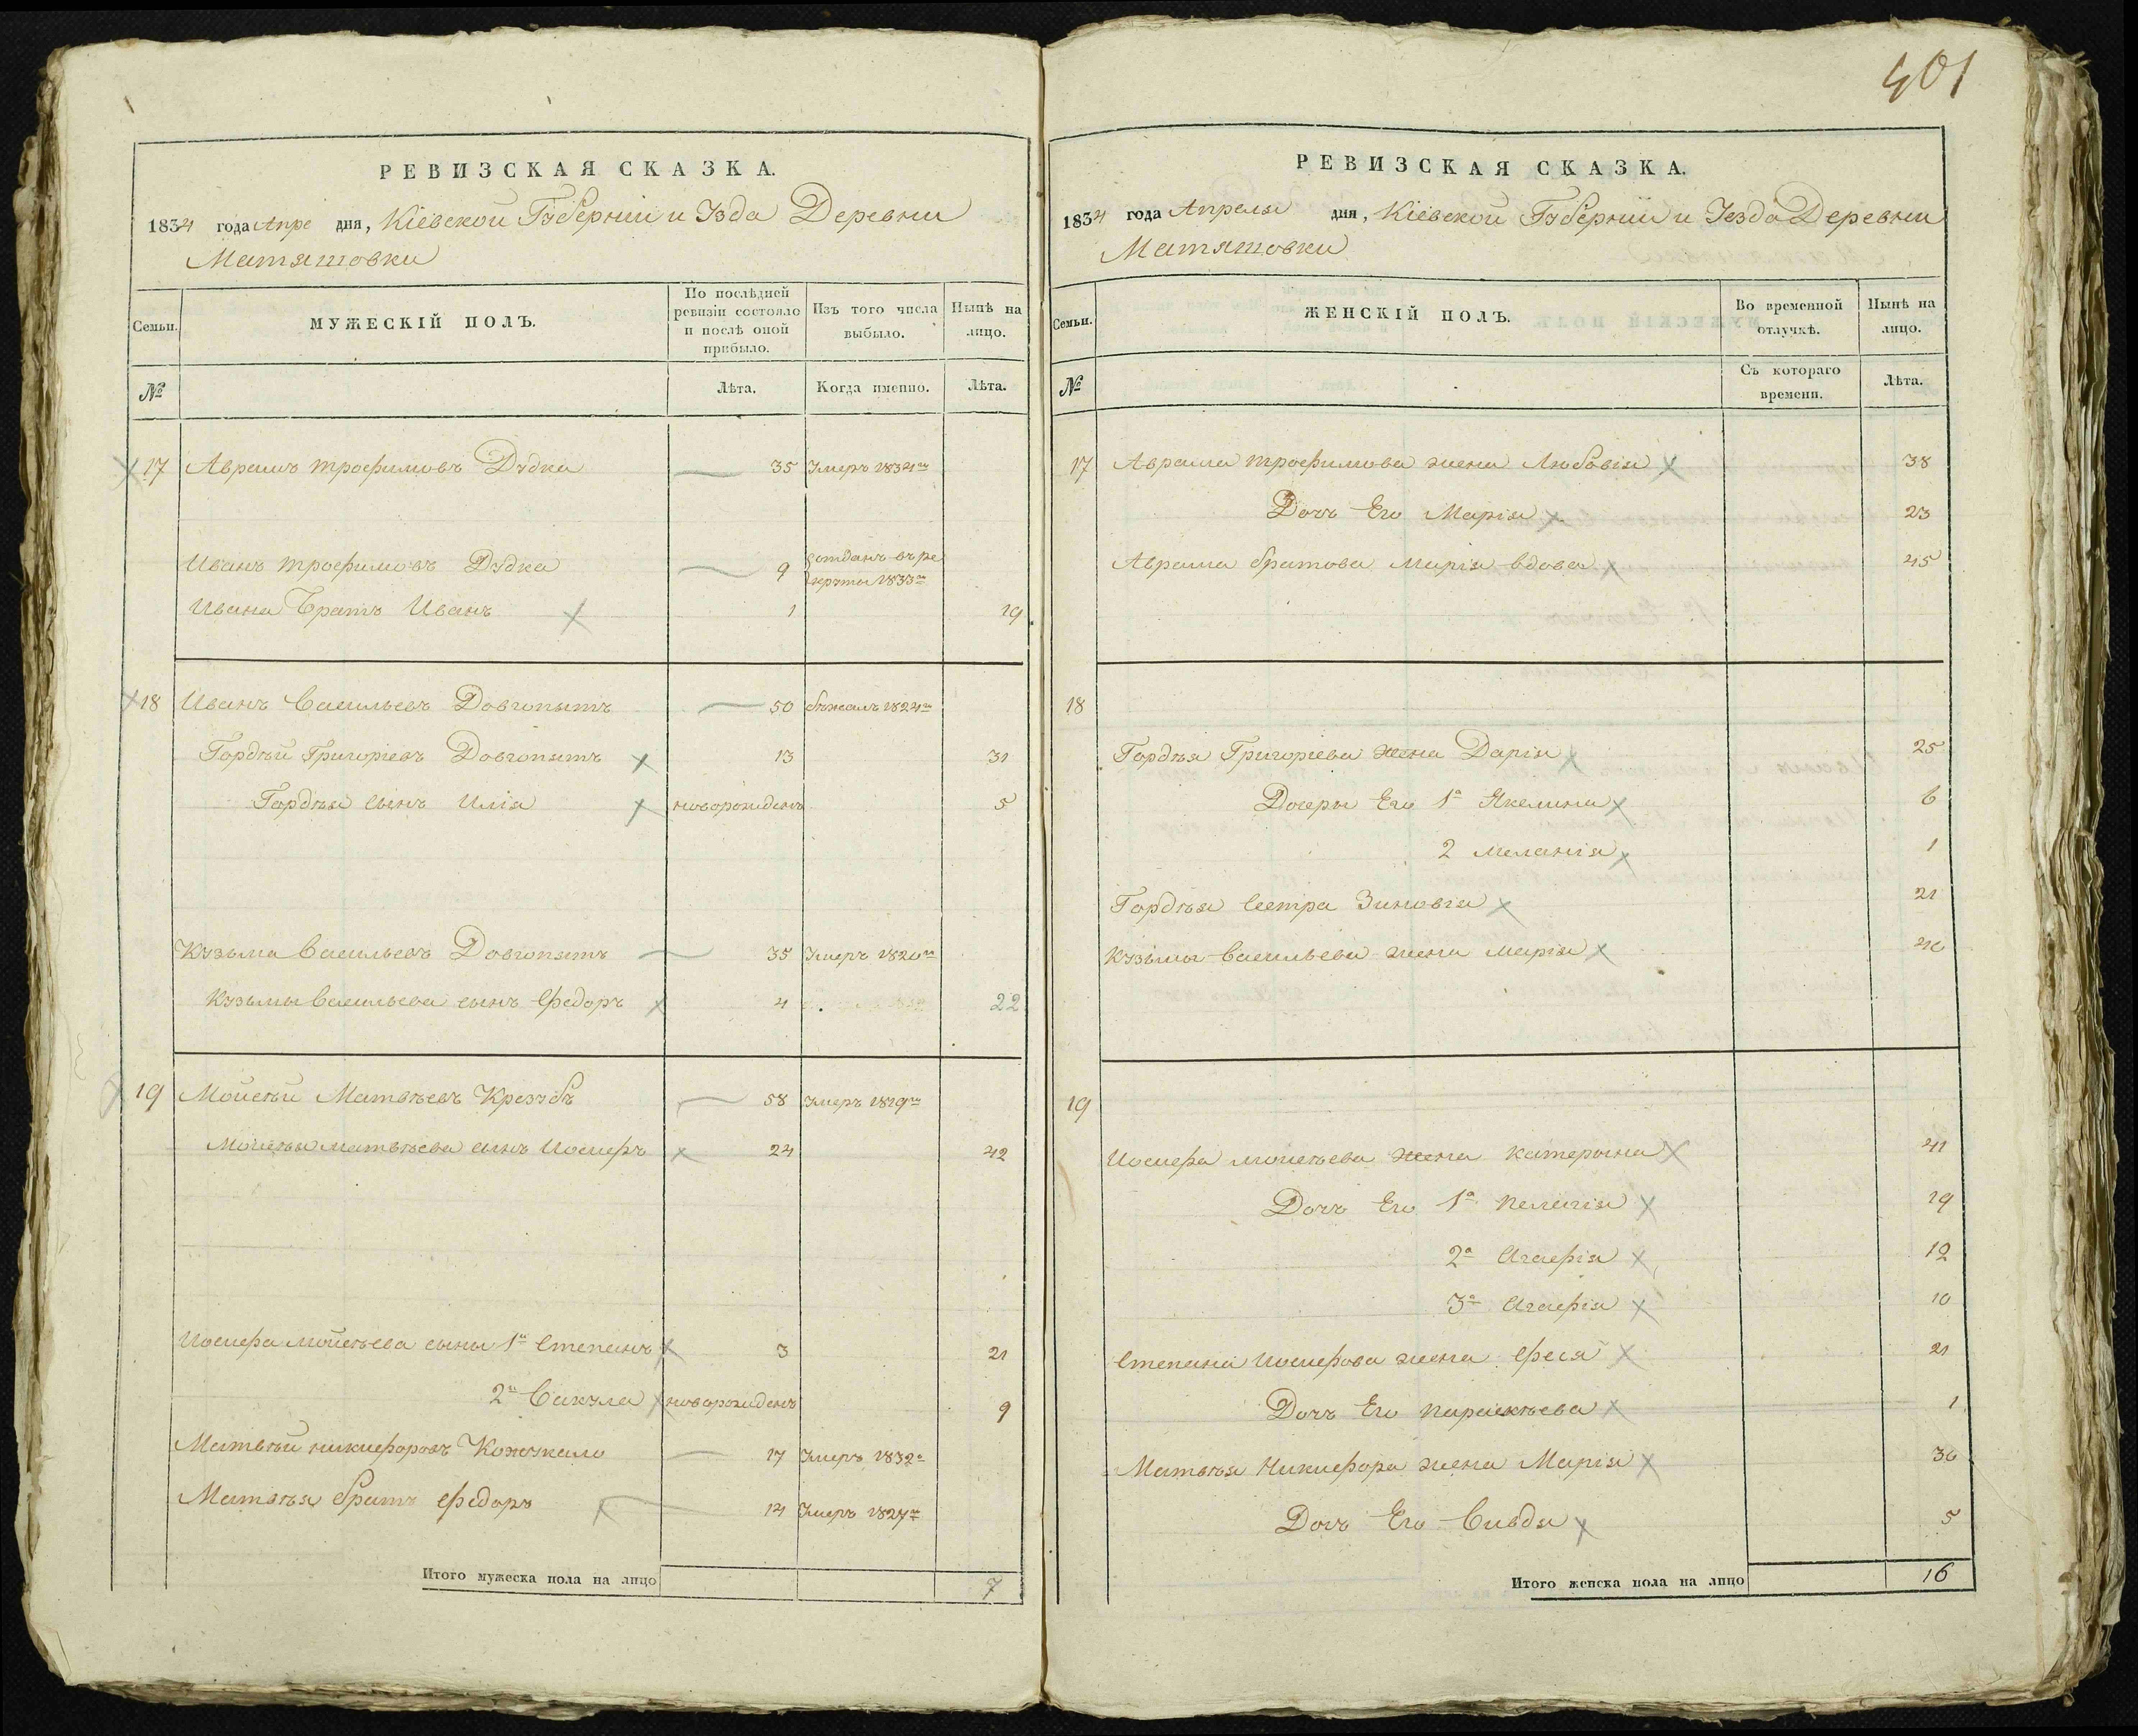 401
РЕВИЗСКАЯ СКАЗКА.
1834 года Апре дня, Кіевской Губерніи и Уѣзда Деревни
Матяшовки
Семьи.
МУЖЕСКІЙ ПОЛЪ.
По послѣдней ревизіи состояло и послѣ оной прибыло.
Изъ того числа выбыло.
Нынѣ на лицо.
№
Лѣта.
Когда именно.
Лѣта.
17 Аврамъ Трофимовъ Дудка 35 Умеръ 1834го
Иванъ Трофимовъ Дудка 9 отданъ въ ре
круты 1833го
Ивана Братъ Иванъ 1 19
18 Иванъ Васильевъ Довгопятъ 50 бѣжалъ 1824го
Гордѣй Григоріевъ Довгопятъ 13 31
Гордѣя сынъ Илія новорожденъ 5
Кузьма Васильевъ Довгопятъ 35 Умеръ 1820го
Кузьмы Васильева сынъ Федоръ 4 22
19 Мойсѣй Матвѣевъ 58 Умеръ 1819го
Мойсѣя Матвѣева сынъ Иосифъ 24 42
Иосифа Мойсѣева сыны 1й Степанъ 3 21
2й Вакула новорожденъ 9
Матвѣй Никифоровъ Кожужкало 17 Умеръ 1832го
Матвѣя братъ Федоръ 14 Умеръ 1827го
Итого мужеска пола на лицо 7
РЕВИЗСКАЯ СКАЗКА.
1834 года Апреля дня, Кіевской Губерніи и Уезда Деревни
Матяшовки
Семьи.
ЖЕНСКІЙ ПОЛЪ.
Во временной отлучкѣ.
Нынѣ на лицо.
№
Съ котораго времени.
Лѣта.
17 Аврама Трофимова жена Любовія 38
Дочь Его Марія 23
Аврама братова Марія вдова 45
18
Гордѣя Григоріева жена Дарія 25
Дочеры Его 1а Якелина 6
2 Меланія 1
Гордѣя Сестра Зиновія 21
Кузьмы Васильева жена Марія 40
19
Иосифа Мойсѣева жена Катерина 41
Дочь Его 1а Пелагія 19
2а Агафія 12
3а Агафія 10
Степана Иосифова жена Феся 21
Дочь Его Парасктьева 1
Матвѣя Никифора жена Марія 30
Дочь Его 5
Итого женска пола на лицо 16